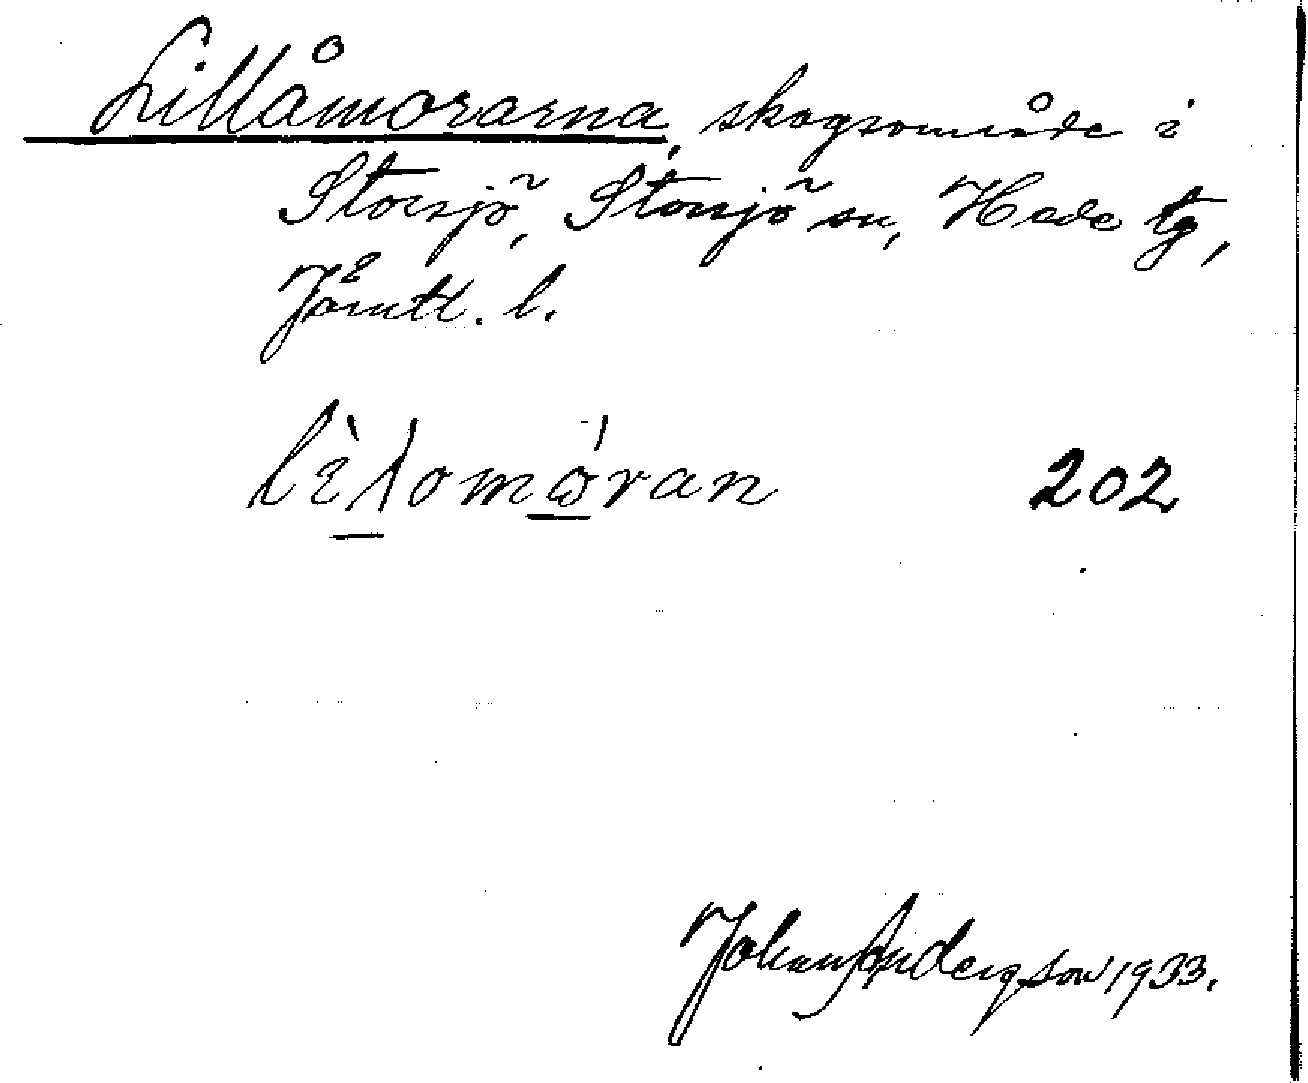 Lillåmorarna, skogsområde i
Storsjö, Storsjö sn, Hede tg,
Jämtl. l.
lèlomóran 202
Johan Anderson 1933.